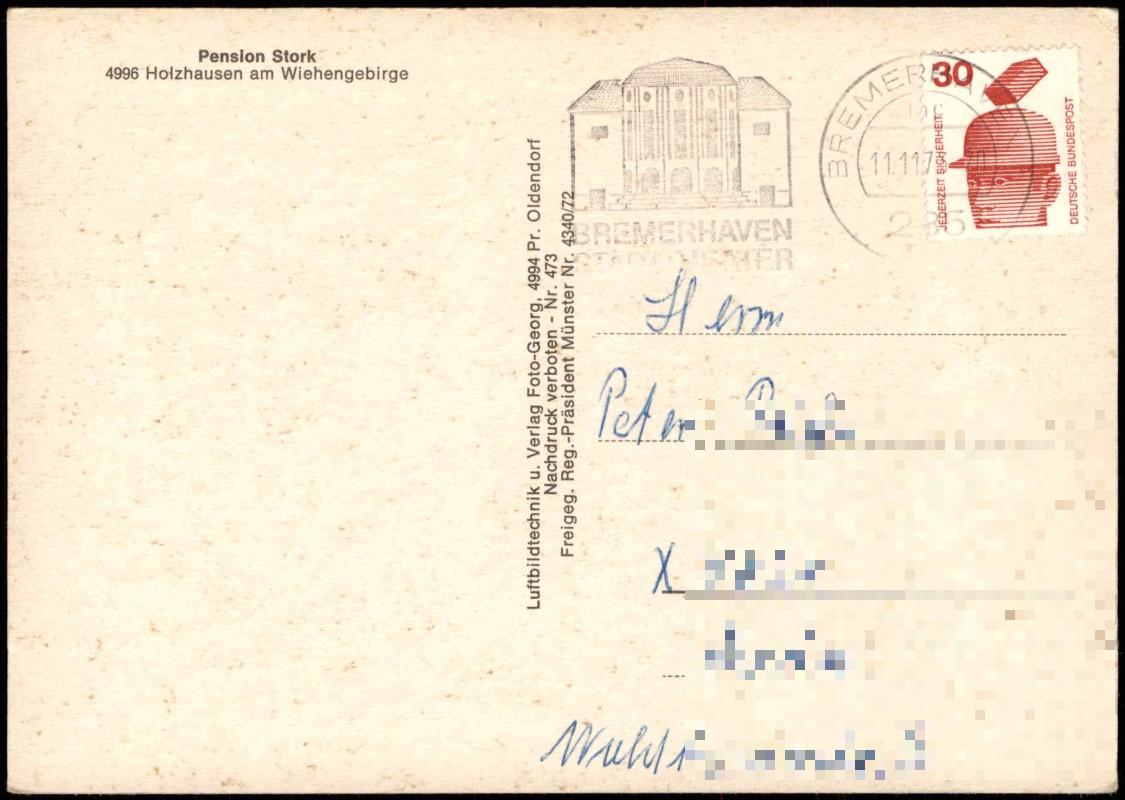 Pension Stork
4996 Holzhausen am Wiehengebirge
Luftbildtechnik u. Verlag Foto-Georg, 4994 Pr. Oldendorf
Nachdruck verboten - Nr. 473
Freigeg. Reg.-Präsident Münster Nr. 4340/72
BREMERHAVEN
STADTTHEATER
BREMERHAVEN
11.11.7
285
30
JEDERZEIT SICHERHEIT
DEUTSCHE BUNDESPOST
Herrn
Peter
X